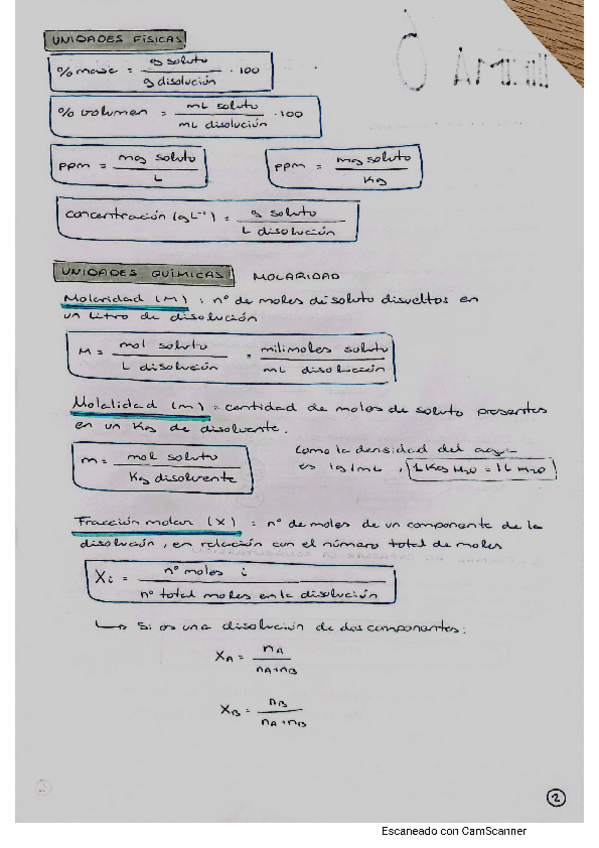 UNIDADES FÍSICAS
% masa = g soluto / g disolución · 100
% volumen = mL soluto / mL disolución · 100
ppm = mg soluto / L    ppm = mg soluto / Kg
concentración (gL⁻¹) = g soluto / L disolución
UNIDADES QUÍMICAS MOLARIDAD
Molaridad (M) : nº de moles de soluto disueltos en
un litro de disolución
M = mol soluto / L disolución = milimoles soluto / mL disolución
Molalidad (m) = cantidad de moles de soluto presentes
en un Kg de disolvente.
m = mol soluto / Kg disolvente
Como la densidad del agua
es 1g/mL, 1 Kg H₂O = 1L H₂O
Fracción molar (X) : nº de moles de un componente de la
disolución, en relación con el número total de moles
Xi = nº moles i / nº total moles en la disolución
↳ Si es una disolución de dos componentes:
XA = nA / nA+nB
XB = nB / nA+nB
2
Escaneado con CamScanner